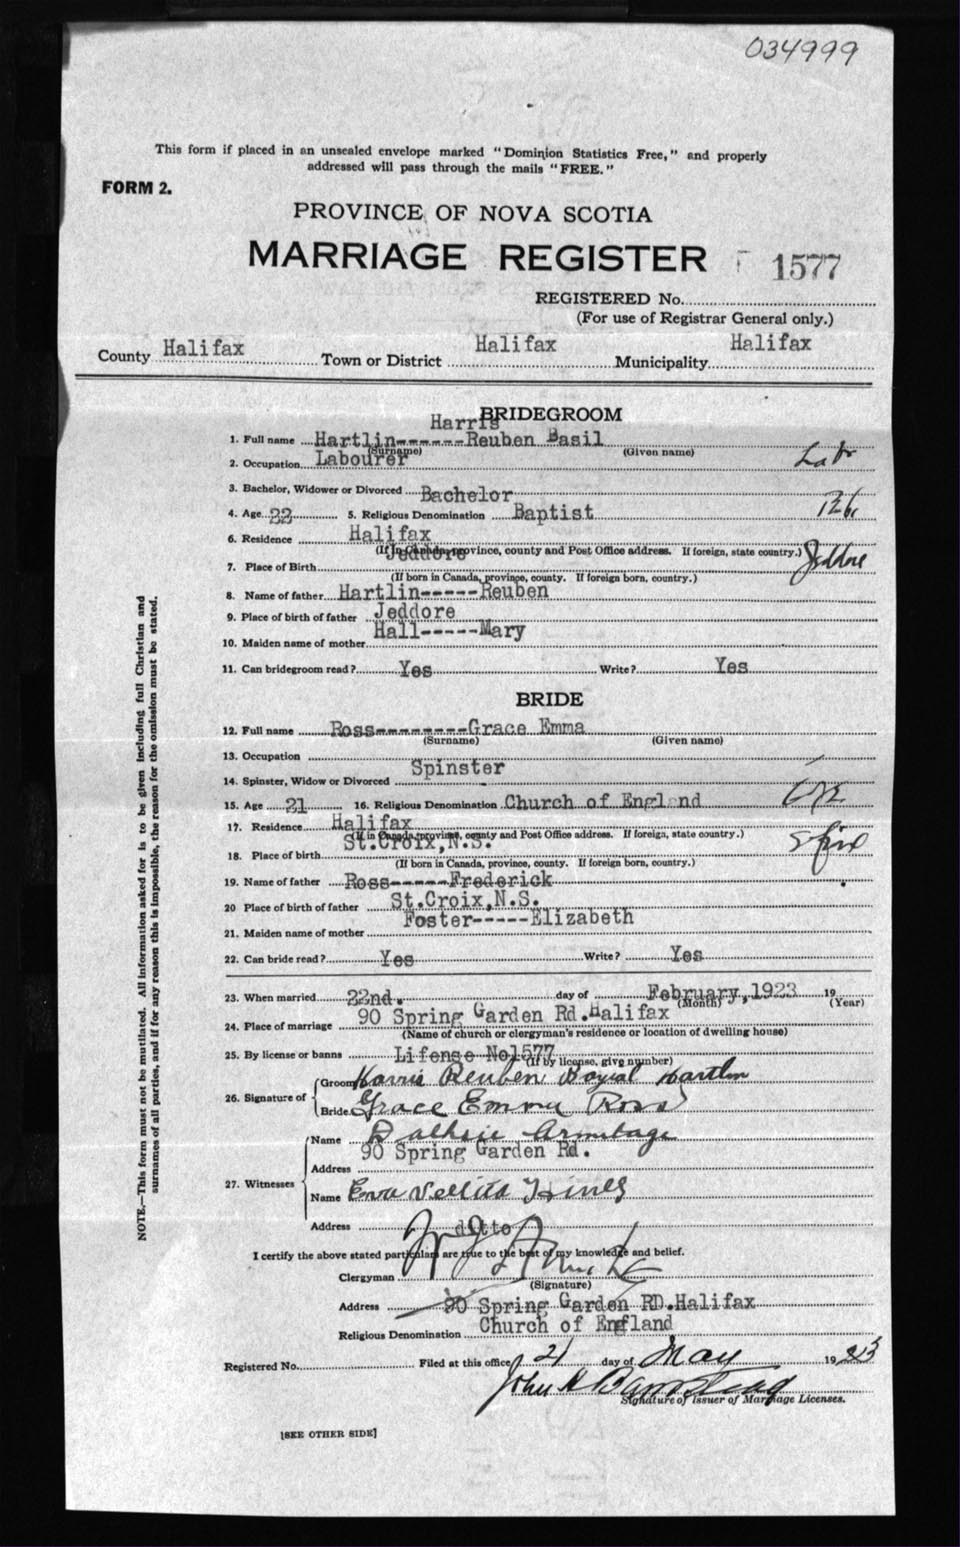 034999
This form if placed in an unsealed envelope marked "Dominion Statistics Free," and properly
addressed will pass through the mails "FREE."
FORM 2.
PROVINCE OF NOVA SCOTIA
MARRIAGE REGISTER 1577
REGISTERED No.
(For use of Registrar General only.)
County Halifax Town or District Halifax Municipality Halifax
BRIDEGROOM
Harris
1. Full name Hartlin------Reuben Basil
(Surname) (Given name)
2. Occupation Labourer Labr
3. Bachelor, Widower or Divorced Bachelor
4. Age 22 5. Religious Denomination Baptist
6. Residence Halifax
(If in Canada, province, county and Post Office address. If foreign, state country.)
7. Place of Birth Jeddore Jeddore
(If born in Canada, province, county. If foreign born, country.)
8. Name of father Hartlin-----Reuben
9. Place of birth of father Jeddore
10. Maiden name of mother Hall-----Mary
11. Can bridegroom read? Yes Write? Yes
BRIDE
12. Full name Ross--------Grace Emma
(Surname) (Given name)
13. Occupation
14. Spinster, Widow or Divorced Spinster
15. Age 21 16. Religious Denomination Church of England
17. Residence Halifax
(If in Canada, province, county and Post Office address. If foreign, state country.)
18. Place of birth St.Croix,N.S.
(If born in Canada, province, county. If foreign born, country.)
19. Name of father Ross-----Frederick
20 Place of birth of father St.Croix,N.S.
21. Maiden name of mother Foster-----Elizabeth
22. Can bride read? Yes Write? Yes
23. When married 22nd. day of February,1923 19
(Month) (Year)
24. Place of marriage 90 Spring Garden Rd.Halifax
(Name of church or clergyman's residence or location of dwelling house)
25. By license or banns Lifense No1577
(If by license, give number)
26. Signature of Groom Harris Reuben Hartlin
Bride Grace Emma Ross
27. Witnesses Name Armitage
Address 90 Spring Garden Rd.
Name Eva
Address ditto
I certify the above stated particulars are true to the best of my knowledge and belief.
Clergyman
(Signature)
Address 90 Spring Garden RD.Halifax
Religious Denomination Church of England
Registered No. Filed at this office 21 day of May 1923
John
Signature of Issuer of Marriage Licenses.
[SEE OTHER SIDE]
NOTE.—This form must not be mutilated. All information asked for is to be given including full Christian and
surnames of all parties, and if for any reason this is impossible, the reason for the omission must be stated.